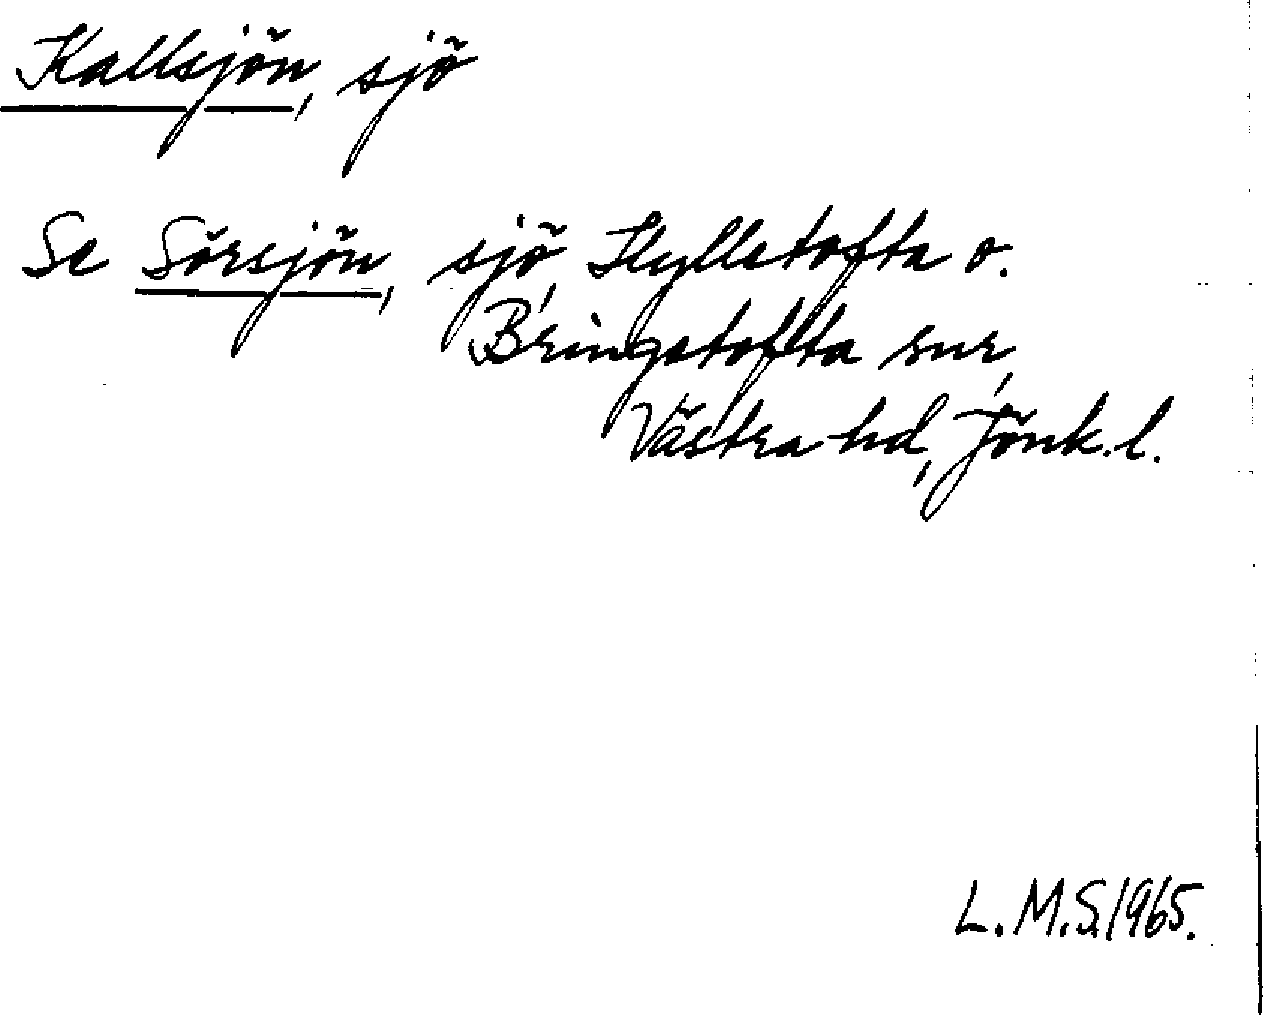 Kallsjön, sjö
Se Sörsjön, sjö, Hylletofta o.
Bringetofta snr,
Västra hd, Jönk. l.
L. M. S. 1965.